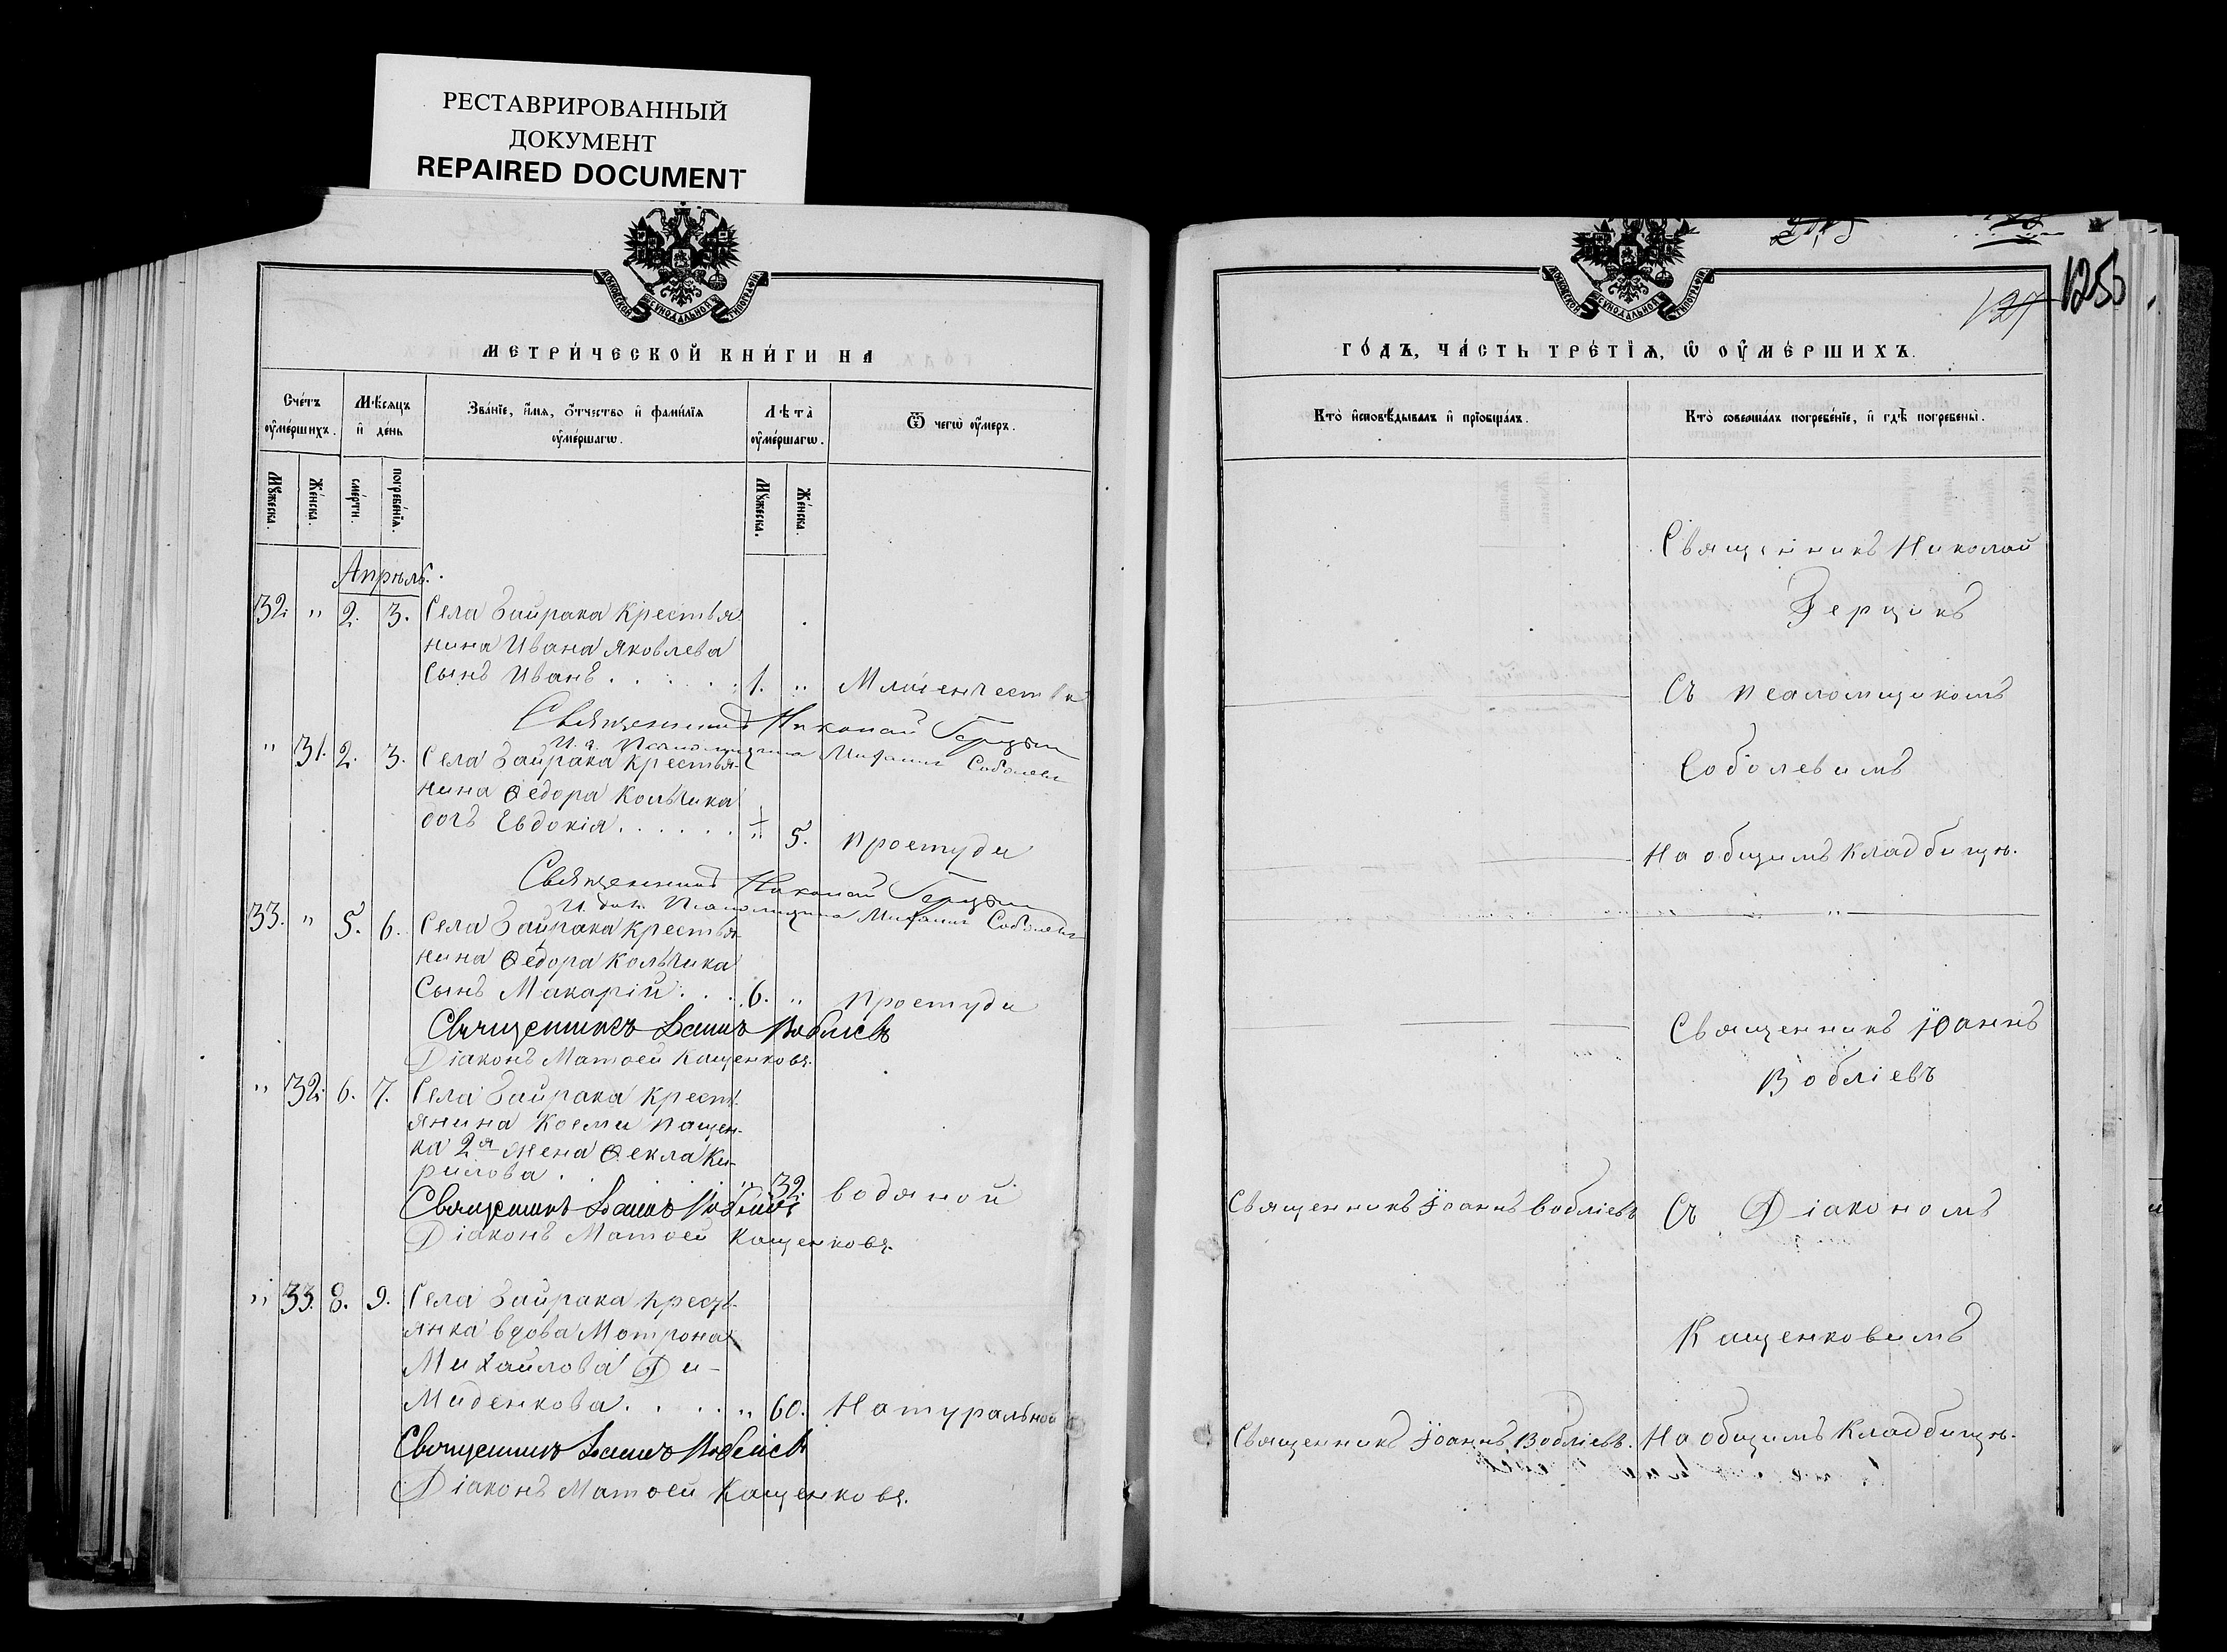 РЕСТАВРИРОВАННЫЙ
ДОКУМЕНТ
REPAIRED DOCUMENT
МОСКОВСКОЙ СѴНОДАЛЬНОЙ ТИПОГРАФІИ
МЕТРИ́ЧЕСКОЙ КНИ́ГИ НА
Сче́тъ ᲂу҆ме́ршихъ.
Мѣ́сѧцъ и҆ де́нь
Зва́нїе, и҆́мѧ, ѻ҆́тчество и҆ фами́лїѧ ᲂу҆ме́ршагѡ.
Лѣ́та ᲂу҆ме́ршагѡ.
Ѿ чегѡ̀ ᲂу҆́меръ.
Мꙋ́жеска.
Же́нска.
сме́рти.
погребе́нїѧ.
Мꙋ́жеска.
Же́нска.
Апрѣль.
32. " 2. 3. Села Байрака Крестья
нина Ивана Яковлева
Сынъ Иванъ . . . . . 1. " Младенчества
Священникъ Николай Герцикъ
Псаломщика Михаилъ Соболевъ
" 31. 2. 3. Села Байрака Крестья-
нина Ѳедора Кольчика
дочь Евдокія . . . . . " 5. простуди
Священникъ Николай Герцикъ
Псаломщика Михаилъ Соболевъ
33. " 5. 6. Села Байрака Крестья-
нина Ѳедора Кольчика
Сынъ Макарій . . . 6. " простуди
Священникъ Іоаннъ Вобліевъ
Діаконъ Матѳей Кащенковъ.
" 32. 6. 7. Села Байрака Кресть-
янина Косми Пащен-
ка 2я жена Ѳекла Ки-
рилова . . . . . " 32. водяной
Священникъ Іоаннъ Вобліевъ
Діаконъ Матѳей Кащенковъ.
" 33. 8. 9. Села Байрака Кресть-
янка вдова Матрона
Михайлова Ди-
миденкова . . . . " 60. Натуральной
Священникъ Іоаннъ Вобліевъ
Діаконъ Матѳей Кащенковъ.
125
МОСКОВСКОЙ СѴНОДАЛЬНОЙ ТИПОГРАФІИ
ГО́ДЪ, ЧА́СТЬ ТРЕ́ТЇѦ, Ѡ҆ ОУ҆МЕ́РШИХЪ.
Кто̀ и҆сповѣ́дывалъ и҆ прїобща́лъ.
Кто̀ соверша́лъ погребе́нїе, и҆ гдѣ̀ погребены̀.
Священникъ Николай
Герцикъ
Съ псаломщикомъ
Соболевимъ
На общимъ Кладбищѣ.
"
Священникъ Іоаннъ
Вобліевъ
Священникъ Іоаннъ Вобліевъ
Съ Діакономъ
Кащенковимъ
Священникъ Іоаннъ Вобліевъ.
На общимъ Кладбищѣ.